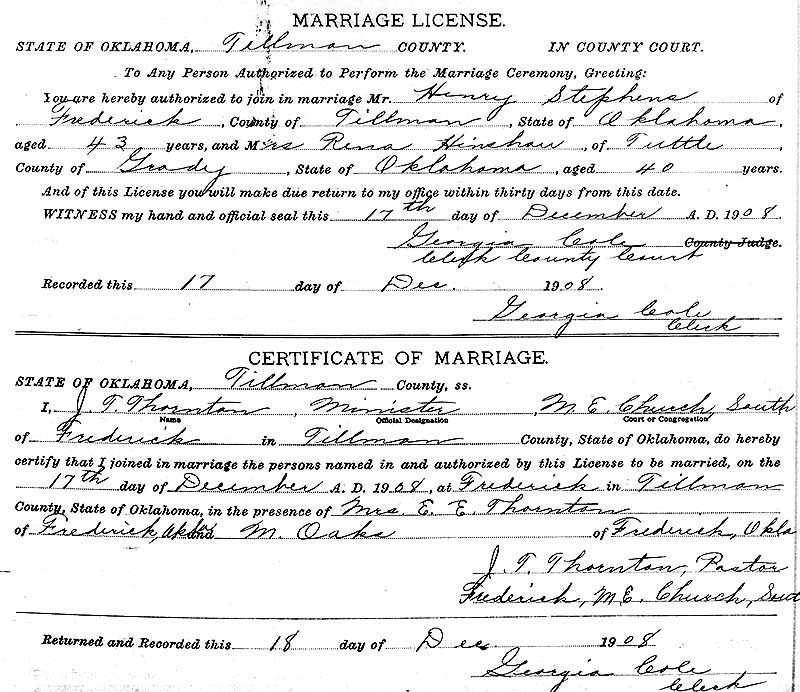 MARRIAGE LICENSE.
STATE OF OKLAHOMA, Tillman COUNTY. IN COUNTY COURT.
To Any Person Authorized to Perform the Marriage Ceremony, Greeting:
You are hereby authorized to join in marriage Mr. Henry Stephens of
Frederick, County of Tillman, State of Oklahoma,
aged 43 years, and Mrs Rena Hinshaw, of Tuttle,
County of Grady, State of Oklahoma, aged 40 years.
And of this License you will make due return to my office within thirty days from this date.
WITNESS my hand and official seal this 17th day of December A. D. 1908.
Georgia Cole County Judge.
Clerk County Court
Recorded this 17 day of Dec. 1908.
Georgia Cole
Clerk
CERTIFICATE OF MARRIAGE.
STATE OF OKLAHOMA, Tillman County, ss.
I, J. T. Thornton, Minister, M. E. Church, South
Name Official Designation Court or Congregation
of Frederick in Tillman County, State of Oklahoma, do hereby
certify that I joined in marriage the persons named in and authorized by this License to be married, on the
17th day of December A. D. 1908, at Frederick in Tillman
County, State of Oklahoma, in the presence of Mrs. E. E. Thornton
of Frederick, and M. Oaks of Frederick, Okla
J. T. Thornton, Pastor
Frederick, M. E. Church, Sout
Returned and Recorded this 18 day of Dec 1908
Georgia Cole
Clerk